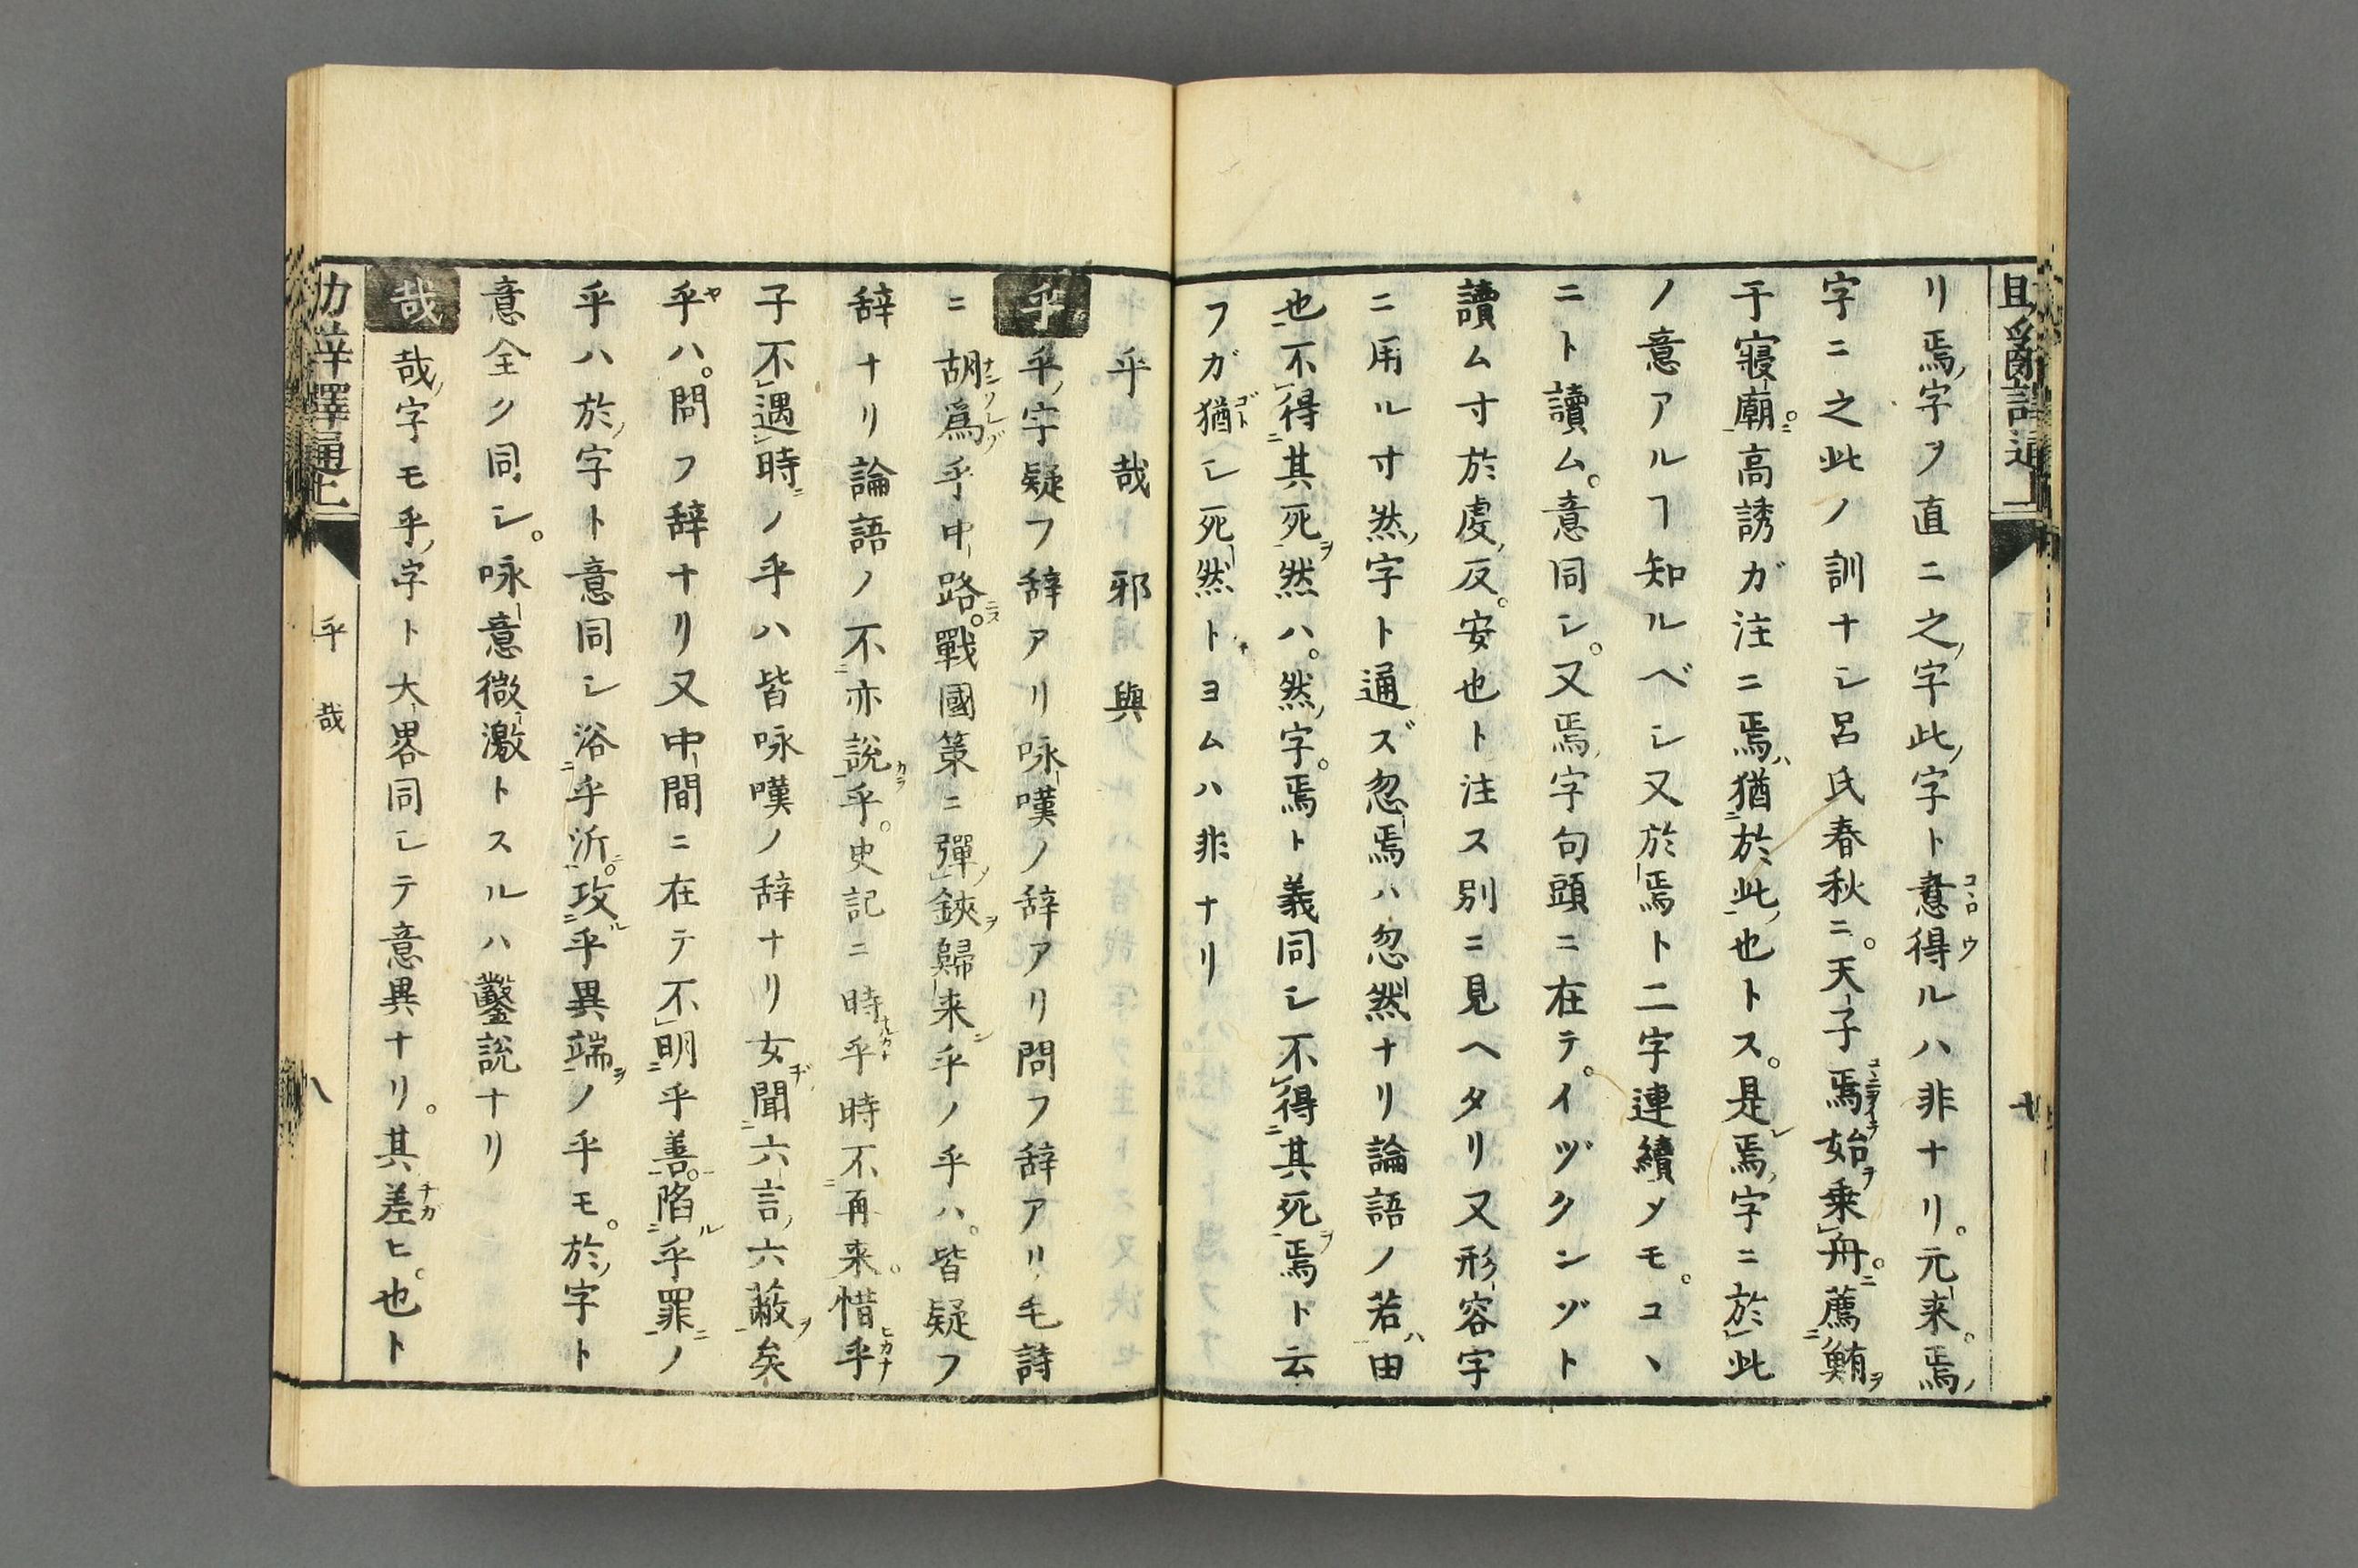 リ焉ノ字ヲ直ニ之ノ字此ノ字ト意得ルハ非ナリ。元来。焉ノ
字ニ之此ノ訓ナシ呂氏春秋ニ。天子焉始乗舟。薦鮪
于寝廟。高誘ガ注ニ焉ハ猶於此也トス。是焉ノ字ニ於此
ノ意アルヿ知ルベシ又於焉ト二字連續メモ。コヽ
ニト讀ム。意同シ。又焉ノ字句頭ニ在テ。イヅクンゾト
讀ム寸於虔ノ反。安也ト注ス別ニ見ヘタリ又形容字
ニ用ル寸然ノ字ト通ズ忽焉ハ忽然ナリ論語ノ若由
也不得其死然ハ。然ノ字。焉ト義同シ不得其死焉ト云
フガ猶シ死然トヨムハ非ナリ
乎哉邪與
乎 乎ノ字疑フ辞アリ咏嘆ノ辞アリ問フ辞アリ毛詩
ニ胡爲乎中路。戰國策ニ彈鋏歸来乎ノ乎ハ。皆疑フ
辞ナリ論語ノ不亦説乎。史記ニ時乎時不再来。惜乎
子不遇時ノ乎ハ皆咏嘆ノ辞ナリ女聞六言六蔽矣
乎ハ。問フ辞ナリ又中間ニ在テ不明乎善。陷乎罪ノ
乎ハ於ノ字ト意同シ浴乎沂。攻乎異端ノ乎モ。於ノ字ト
意全ク同シ。咏意微激トスルハ鑿説ナリ
哉 哉ノ字モ乎ノ字ト大畧同シテ意異ナリ。其差ヒ。也ト
乎 哉
八